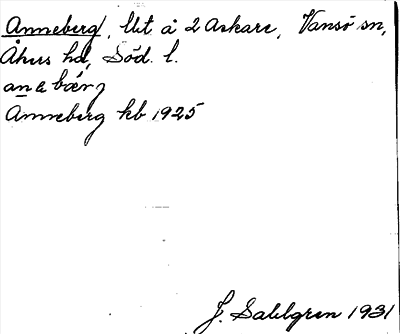 Anneberg, lht å 2 Askare, Vansö sn,
Åkers hd, Söd. l.
an e bærj
Anneberg kb 1925
J. Sahlgren 1931